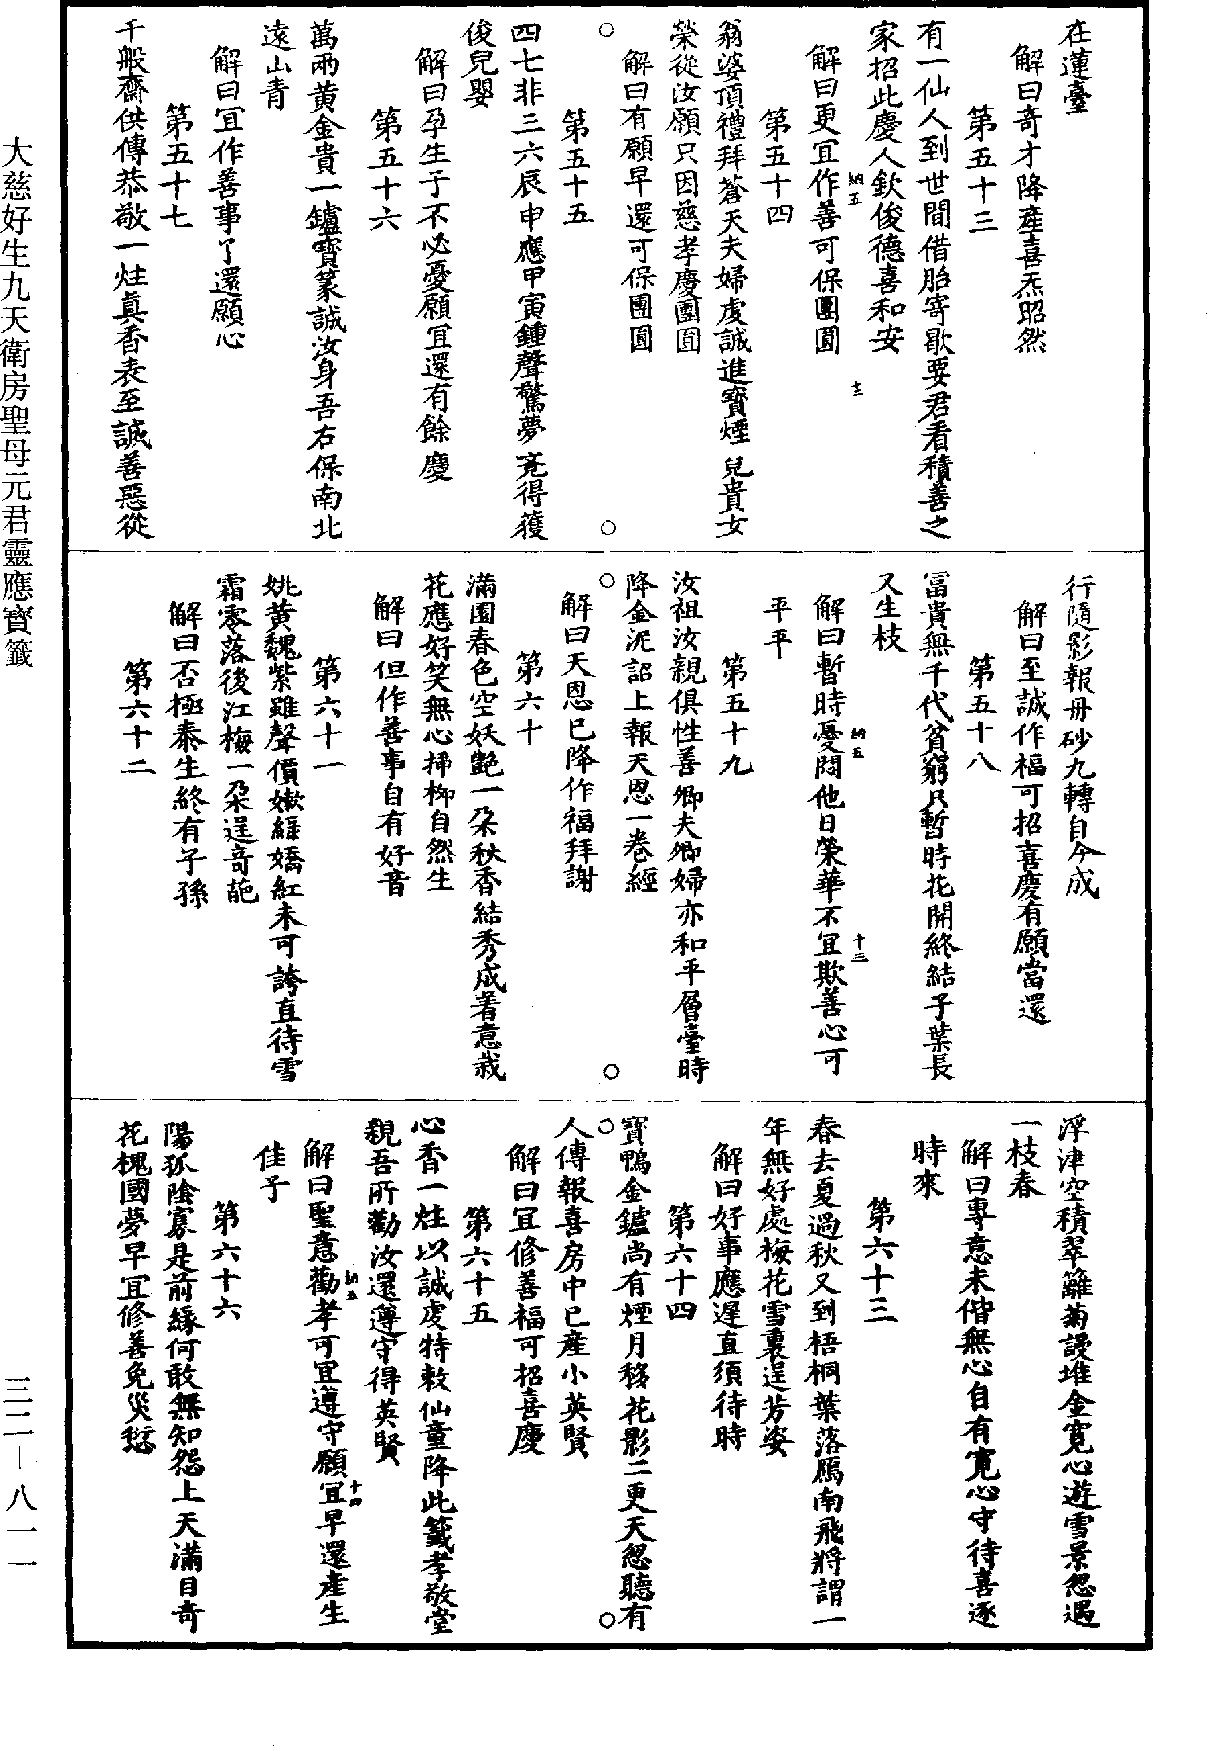 在蓮臺
解曰奇才降產喜炁昭然
第五十三
有一仙人到世間借胎寄歇要君看積善之
家招此慶人欽俊德喜和安
解曰更宜作善可保團圓
納五
十三
第五十四
翁婆頂禮拜蒼天夫婦虔誠進寶煙兒貴女
榮從汝願只因慈孝慶團圓
解曰有願早還可保團圓
第五十五
四七非三六辰申應甲寅鍾聲驚夢覔得獲
俊兒嬰
解曰孕生子不必憂願宜還有餘慶
第五十六
萬兩黃金貴一鑪寶篆誠汝身吾右保南北
遠山青
解曰宜作善事了還願心
第五十七
千般齋供傳恭敬一炷真香表至誠善惡從
行隨影報丹砂九轉自今成
解曰至誠作福可招喜慶有願當還
第五十八
富貴無千代貧窮只暫時花開終結子葉長
又生枝
解曰暫時憂悶他日榮華不宜欺善心可
納五
十三
平平
第五十九
汝祖汝親俱性善卿夫卿婦亦和平層臺時
降金泥詔上報天恩一卷經
解曰天恩已降作福拜謝
第六十
滿園春色空妖艷一朵秋香結秀成著意栽
花應好笑無心掃柳自然生
解曰但作善事自有好音
第六十一
姚黃魏紫雖聲價嫩綠嬌紅未可誇直待雪
霜零落後江梅一朵逞奇葩
解曰否極泰生終有子孫
第六十二
浮津空積翠籬菊謾堆金寬心遊雪景忽遇
一枝春
解曰專意未偕無心自有寬心守待喜逐
時來
第六十三
春去夏過秋又到梧桐葉落鴈南飛將謂一
年無好處梅花雪裏逞芳姿
解曰好事應遲直須待時
第六十四
寶鴨金鑪尚有煙月移花影二更天忽聽有
人傳報喜房中已產小英賢
解曰宜修善福可招喜慶
第六十五
心香一炷以誠虔特敕仙童降此籤孝敬堂
親吾所勸汝還遵守得英賢
解曰聖意勸孝可宜遵守願宜早還產生
納五
十四
佳子
第六十六
陽孤陰寡是前緣何敢無知怨上天滿目奇
花槐國夢早宜修善免災愆
大慈好生九天衛房聖母元君靈應寶籤
三二—八一一